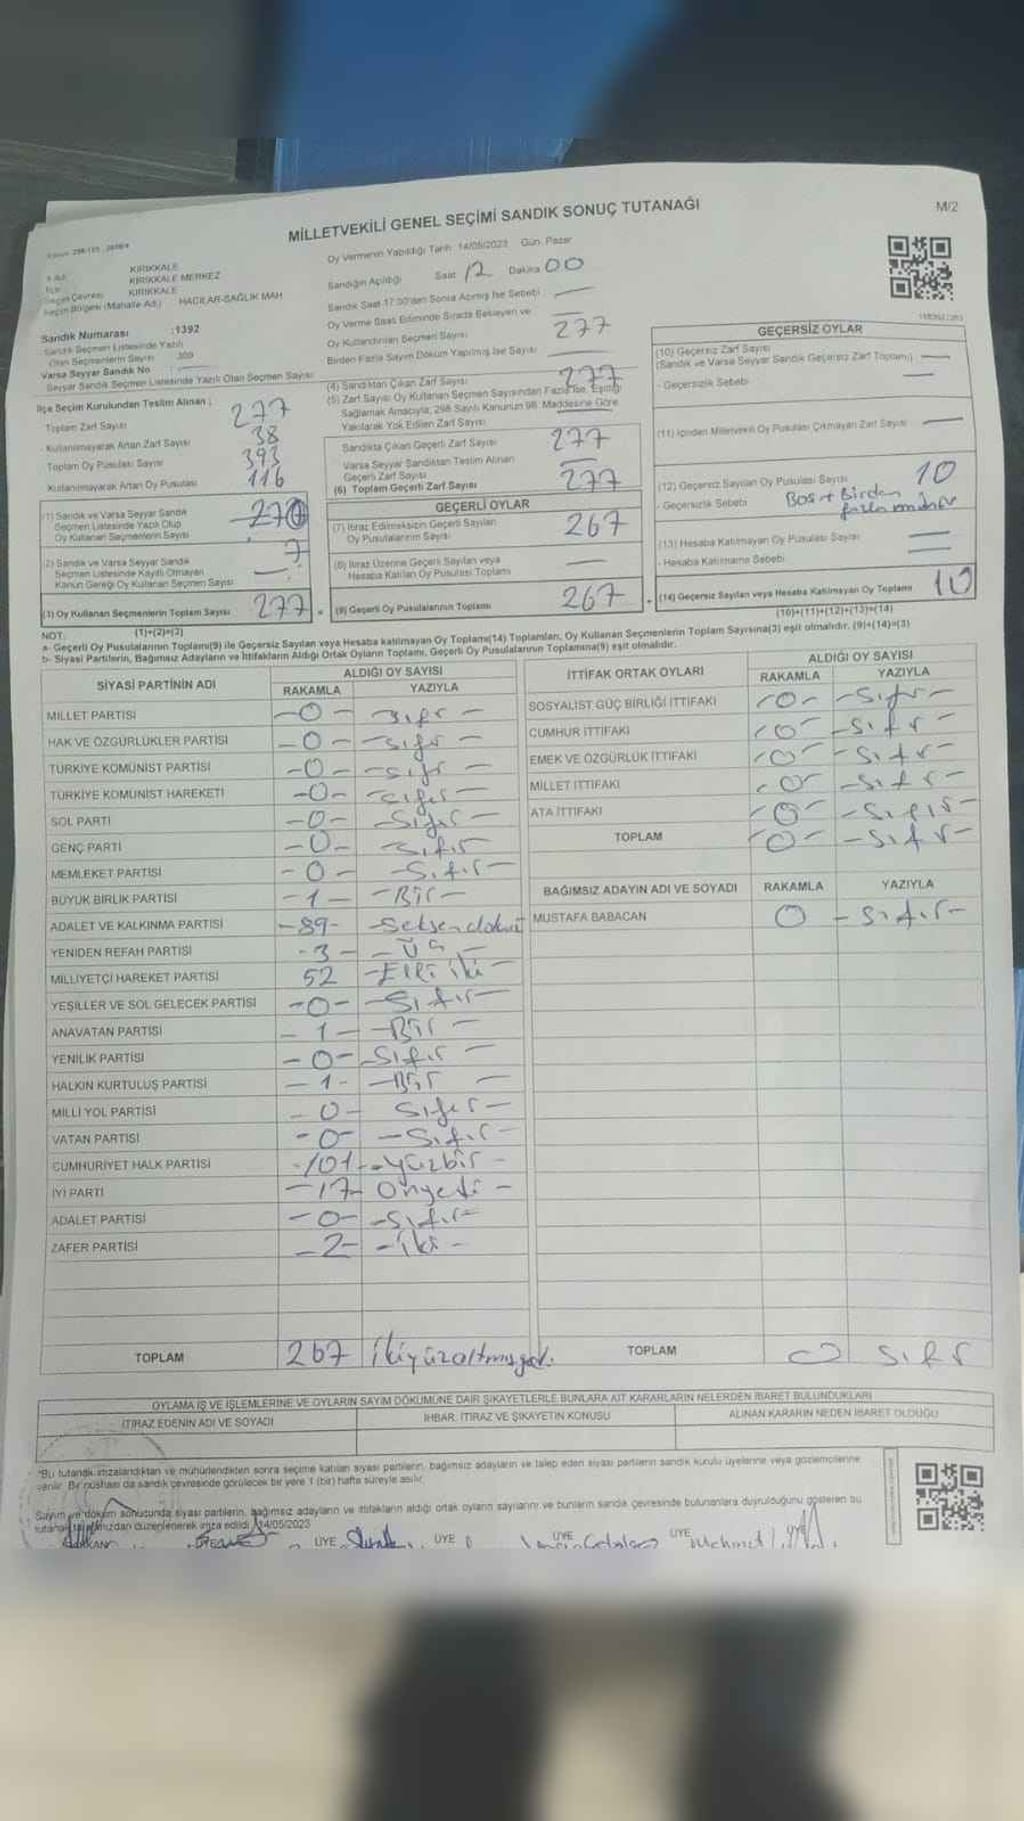 MİLLETVEKİLİ GENEL SEÇİMİ SANDIK SONUÇ TUTANAĞI
M/2
KIRIKKALE
KIRIKKALE MERKEZ
KIRIKKALE
Seçim Bölgesi (Mahalle Adı) HACILAR-SAĞLIK MAH
Sandık Numarası :1392
Sandık Seçmen Listesinde Yazılı
Olan Seçmenlerin Sayısı 309
Varsa Seyyar Sandık No
Seyyar Sandık Seçmen Listesinde Yazılı Olan Seçmen Sayısı
Oy Vermenin Yapıldığı Tarih 14/05/2023 Gün. Pazar
Sandığın Açıldığı Saat 12 Dakika 00
Sandık Saat 17.00'den Sonra Açılmış İse Sebebi
Oy Verme Saati Bitiminde Sırada Bekleyen ve
Oy Kullandırılan Seçmen Sayısı 277
Birden Fazla Sayım Döküm Yapılmış İse Sayısı
İlçe Seçim Kurulundan Teslim Alınan :
Toplam Zarf Sayısı 277
Kullanılmayarak Artan Zarf Sayısı 38
Toplam Oy Pusulası Sayısı 393
Kullanılmayarak Artan Oy Pusulası 116
(1) Sandık ve Varsa Seyyar Sandık
Seçmen Listesinde Yazılı Olup
Oy Kullanan Seçmenlerin Sayısı 270
(2) Sandık ve Varsa Seyyar Sandık
Seçmen Listesinde Kayıtlı Olmayan
Kanun Gereği Oy Kullanan Seçmen Sayısı 7
(3) Oy Kullanan Seçmenlerin Toplam Sayısı 277
(1)+(2)=(3)
(4) Sandıktan Çıkan Zarf Sayısı 277
(5) Zarf Sayısı Oy Kullanan Seçmen Sayısından Fazla İse, Eşitliği
Sağlamak Amacıyla, 298 Sayılı Kanunun 98. Maddesine Göre
Yakılarak Yok Edilen Zarf Sayısı
Sandıkta Çıkan Geçerli Zarf Sayısı 277
Varsa Seyyar Sandıktan Teslim Alınan
Geçerli Zarf Sayısı
(6) Toplam Geçerli Zarf Sayısı 277
GEÇERLİ OYLAR
(7) İtiraz Edilmeksizin Geçerli Sayılan
Oy Pusulalarının Sayısı 267
(8) İtiraz Üzerine Geçerli Sayılan veya
Hesaba Katılan Oy Pusulası Toplamı
(9) Geçerli Oy Pusulalarının Toplamı 267
GEÇERSİZ OYLAR
(10) Geçersiz Zarf Sayısı
(Sandık ve Varsa Seyyar Sandık Geçersiz Zarf Toplamı)
- Geçersizlik Sebebi
(11) İçinden Milletvekili Oy Pusulası Çıkmayan Zarf Sayısı
(12) Geçersiz Sayılan Oy Pusulası Sayısı 10
- Geçersizlik Sebebi Boş + Birden
fazla mühür
(13) Hesaba Katılmayan Oy Pusulası Sayısı
- Hesaba Katılmama Sebebi
(14) Geçersiz Sayılan veya Hesaba Katılmayan Oy Toplamı 10
(10)+(11)+(12)+(13)=(14)
NOT:
a- Geçerli Oy Pusulalarının Toplamı(9) ile Geçersiz Sayılan veya Hesaba katılmayan Oy Toplamı(14) Toplamları, Oy Kullanan Seçmenlerin Toplam Sayısına(3) eşit olmalıdır. (9)+(14)=(3)
b- Siyasi Partilerin, Bağımsız Adayların ve İttifakların Aldığı Ortak Oyların Toplamı, Geçerli Oy Pusulalarının Toplamına(9) eşit olmalıdır.
SİYASİ PARTİNİN ADI ALDIĞI OY SAYISI
RAKAMLA YAZIYLA
MİLLET PARTİSİ -0- sıfır -
HAK VE ÖZGÜRLÜKLER PARTİSİ -0- -sıfır -
TÜRKİYE KOMÜNİST PARTİSİ -0- -sıfır -
TÜRKİYE KOMÜNİST HAREKETİ -0- -sıfır-
SOL PARTİ -0- -Sıfır-
GENÇ PARTİ -0- -Sıfır
MEMLEKET PARTİSİ -0- -Sıfır-
BÜYÜK BİRLİK PARTİSİ -1- -Bir-
ADALET VE KALKINMA PARTİSİ -89- -Seksendokuz
YENİDEN REFAH PARTİSİ -3- -Üç-
MİLLİYETÇİ HAREKET PARTİSİ 52 -Elli iki-
YEŞİLLER VE SOL GELECEK PARTİSİ -0- -Sıfır-
ANAVATAN PARTİSİ -1- -Bir-
YENİLİK PARTİSİ -0- -Sıfır-
HALKIN KURTULUŞ PARTİSİ -1- -Bir -
MİLLİ YOL PARTİSİ -0- Sıfır-
VATAN PARTİSİ -0- -Sıfır-
CUMHURİYET HALK PARTİSİ -101- -yüzbir-
İYİ PARTİ -17- Onyedi -
ADALET PARTİSİ -0- -Sıfır-
ZAFER PARTİSİ -2- -iki-
TOPLAM 267 İkiyüzaltmışyedi.
İTTİFAK ORTAK OYLARI ALDIĞI OY SAYISI
RAKAMLA YAZIYLA
SOSYALİST GÜÇ BİRLİĞİ İTTİFAKI -0- -Sıfır-
CUMHUR İTTİFAKI -0- -Sıfır-
EMEK VE ÖZGÜRLÜK İTTİFAKI -0- -Sıfır-
MİLLET İTTİFAKI -0- -Sıfır-
ATA İTTİFAKI -0- -Sıfır-
TOPLAM -0- -Sıfır-
BAĞIMSIZ ADAYIN ADI VE SOYADI RAKAMLA YAZIYLA
MUSTAFA BABACAN 0 -Sıfır-
TOPLAM 0 Sıfır
OYLAMA İŞ VE İŞLEMLERİNE VE OYLARIN SAYIM DÖKÜMÜNE DAİR ŞİKAYETLERLE BUNLARA AİT KARARLARIN NELERDEN İBARET BULUNDUKLARI
İTİRAZ EDENİN ADI VE SOYADI İHBAR, İTİRAZ VE ŞİKAYETİN KONUSU ALINAN KARARIN NEDEN İBARET OLDUĞU
*Bu tutanak imzalandıktan ve mühürlendikten sonra seçime katılan siyasi partilerin, bağımsız adayların ve talep eden siyasi partilerin sandık kurulu üyelerine veya gözlemcilerine
verilir. Bir nüshası da sandık çevresinde görülecek bir yere 1 (bir) hafta süreyle asılır.
Sayım ve döküm sonucunda siyasi partilerin, bağımsız adayların ve ittifakların aldığı ortak oyların sayılarını ve bunların sandık çevresinde bulunanlara duyrulduğunu gösteren bu
tutanak tarafımızdan düzenlenerek imza edildi. 14/05/2023
BAŞKAN ÜYE ÜYE ÜYE ÜYE Mehmet